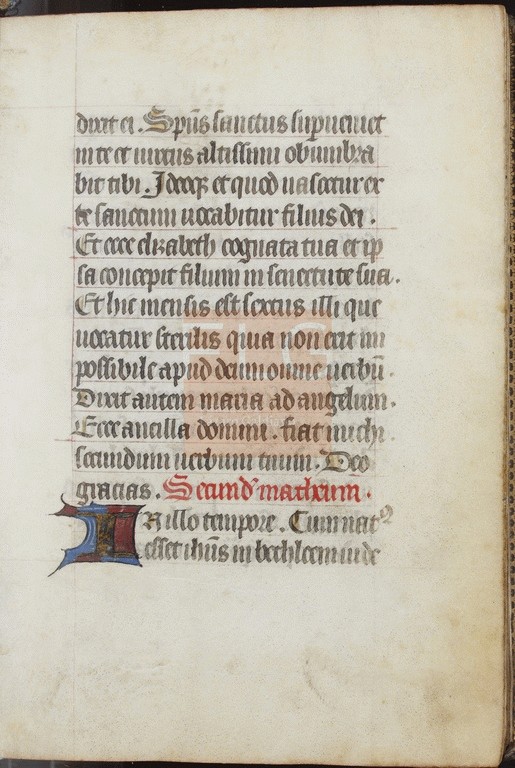 dixit ei. Sp̄us sanctus supueniet
in te et uirtus altissimi obumbra
bit tibi. Ideoq; et quod nascetur ex
te sanctum uocabitur filius dei.
Et ecce elizabeth cognata tua et ip
sa concepit filium in senectute sua.
Et hic mensis est sextus illi que
uocatur sterilis quia non erit im
possibile apud deum omne uerbū.
Dixit autem maria ad angelum.
Ecce ancilla domini. fiat michi
secundum uerbum tuum. Deo
gracias. Secund' matheum.
IN illo tempore. Cum nat9
esset ih̄us in bethleem iude